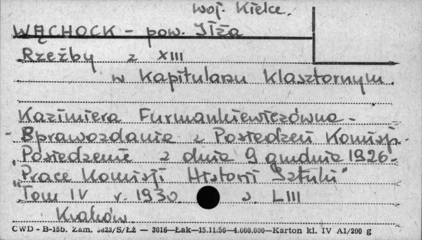 woj. Kielce.
WĄCHOCK - pow. Iłża
Rzeźby z XIII
w Kapitularzu Klasztornym.
Kazimiera Furmankiewiczówna -
- Sprawozdania z Posiedzeń Komisji -
Posiedzenie z dnia 9 grudnia 1926 -
"Prace Komisji Historii Sztuki"
Tom IV r. 1930 s. LIII
Kraków.
CWD - B-15b. Zam. 3823/S/ŁŻ — 3016—Łak—15.11.56—4.000.000—Karton kl. IV A1/200 g